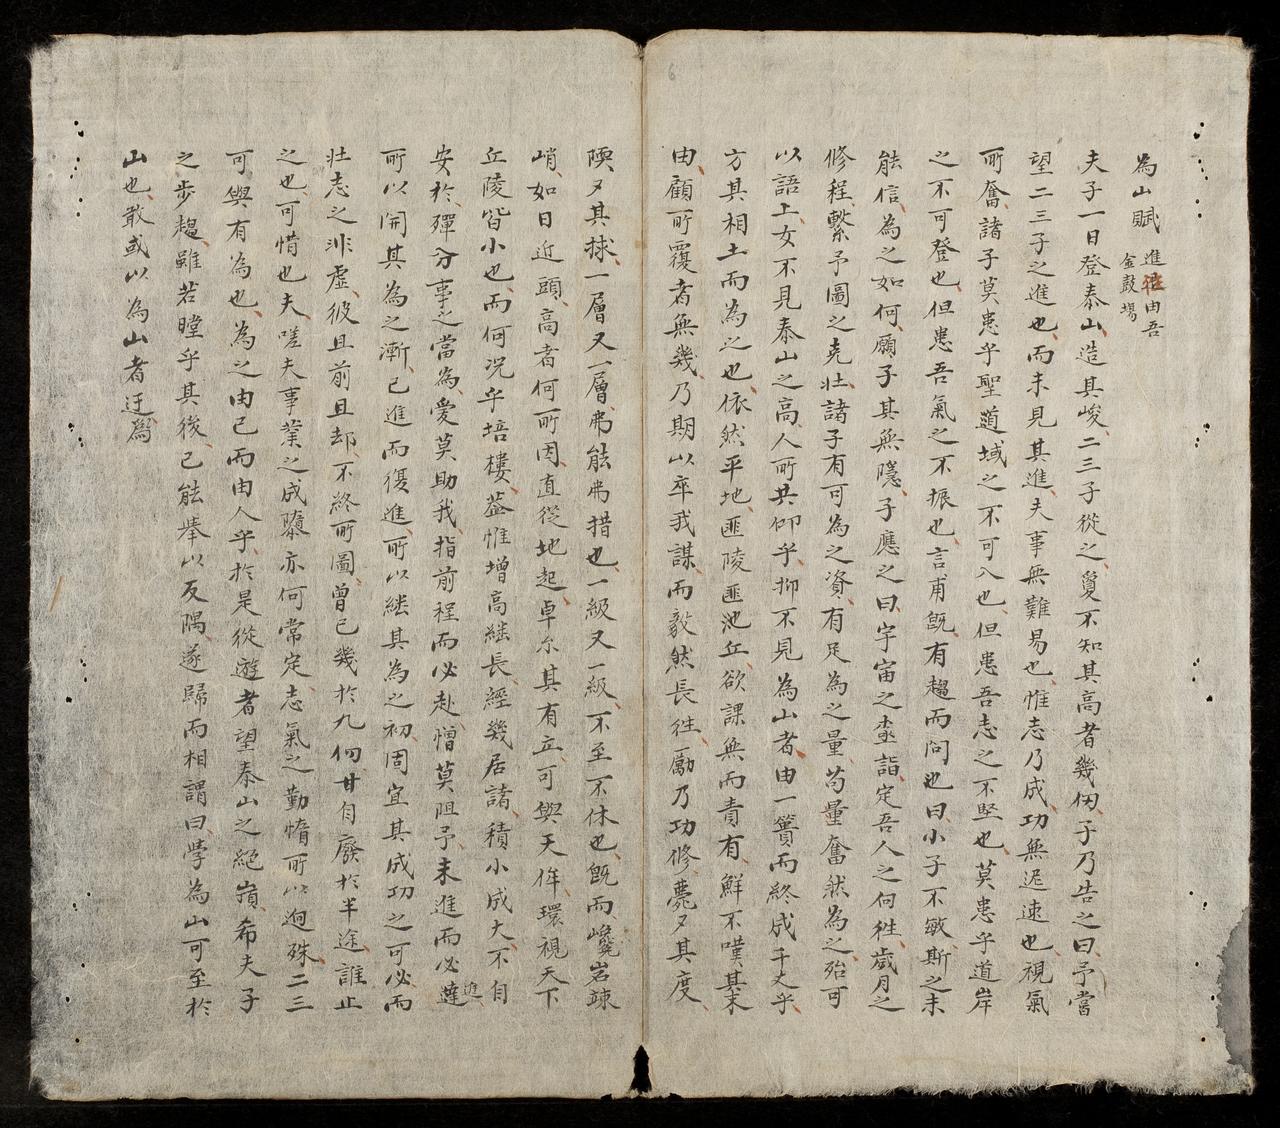 為山賦
進徃由吾
金鼓場
夫子一日登泰山造其峻二三子從之夐不知其高者幾仞子乃告之曰予嘗
望二三子之進也而未見其進夫事無難易也惟志乃成功無遲速也視氣
所奮諸子莫患乎聖道域之不可入也但患吾志之不堅也莫患乎道岸
之不可登也但患吾氣之不振也言甫既有趨而问也曰小子不敏斯之未
能信為之如何願子其無隱子應之曰宇宙之埀詣定吾人之向徃歲月之
修程繫予圖之克壯諸子有可為之資有足為之量苟量奮然為之殆可
以語上女不見泰山之高人所共仰乎抑不見為山者由一簣而終成千丈乎
方其相土而為之也依然平地匪陵匪池丘欲課無而責有鮮不嘆其末
由顧所覆者無幾乃期以卒我謀而毅然長徃勵乃功修薨夕其度
陾夕其捄一層又一層弗能弗措也一級又一級不至不休也既而巉岩竦
峭如日近頭高者何所因直從地起卓尔其有立可與天侔環視天下
丘陵皆小也而何况乎培塿盖惟增高継長經幾居諸積小成大不自
安於殫分事之當為愛莫助我指前程而必赴憎莫阻予未進而必進
所以開其為之漸已進而復進所以継其為之初周宜其成功之可必而
壮志之非虚彼且前且却不終所圖曾已幾於九仞甘自廢於半途誰止
之也可惜也夫嗟夫事業之成隳亦何常定志氣之勤惰所以逈殊二三
可與有為也為之由已而由人乎於是從遊者望泰山之絕嵿希夫子
之步趨雖若瞠乎其後已能舉以反隅遂歸而相謂曰學為山可至於
山也敢或以為山者迂焉